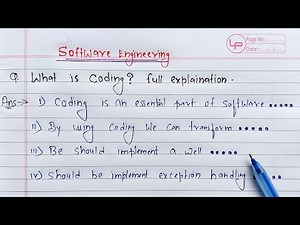 Software Engineering
LP
Page No.:
Date:
Q. What is Coding? full explaination.
Ans→ i) Coding is an essential part of software .....
ii) By using coding we can transform .....
iii) Be should implement a well .....
iv) should be implement exception handling .....